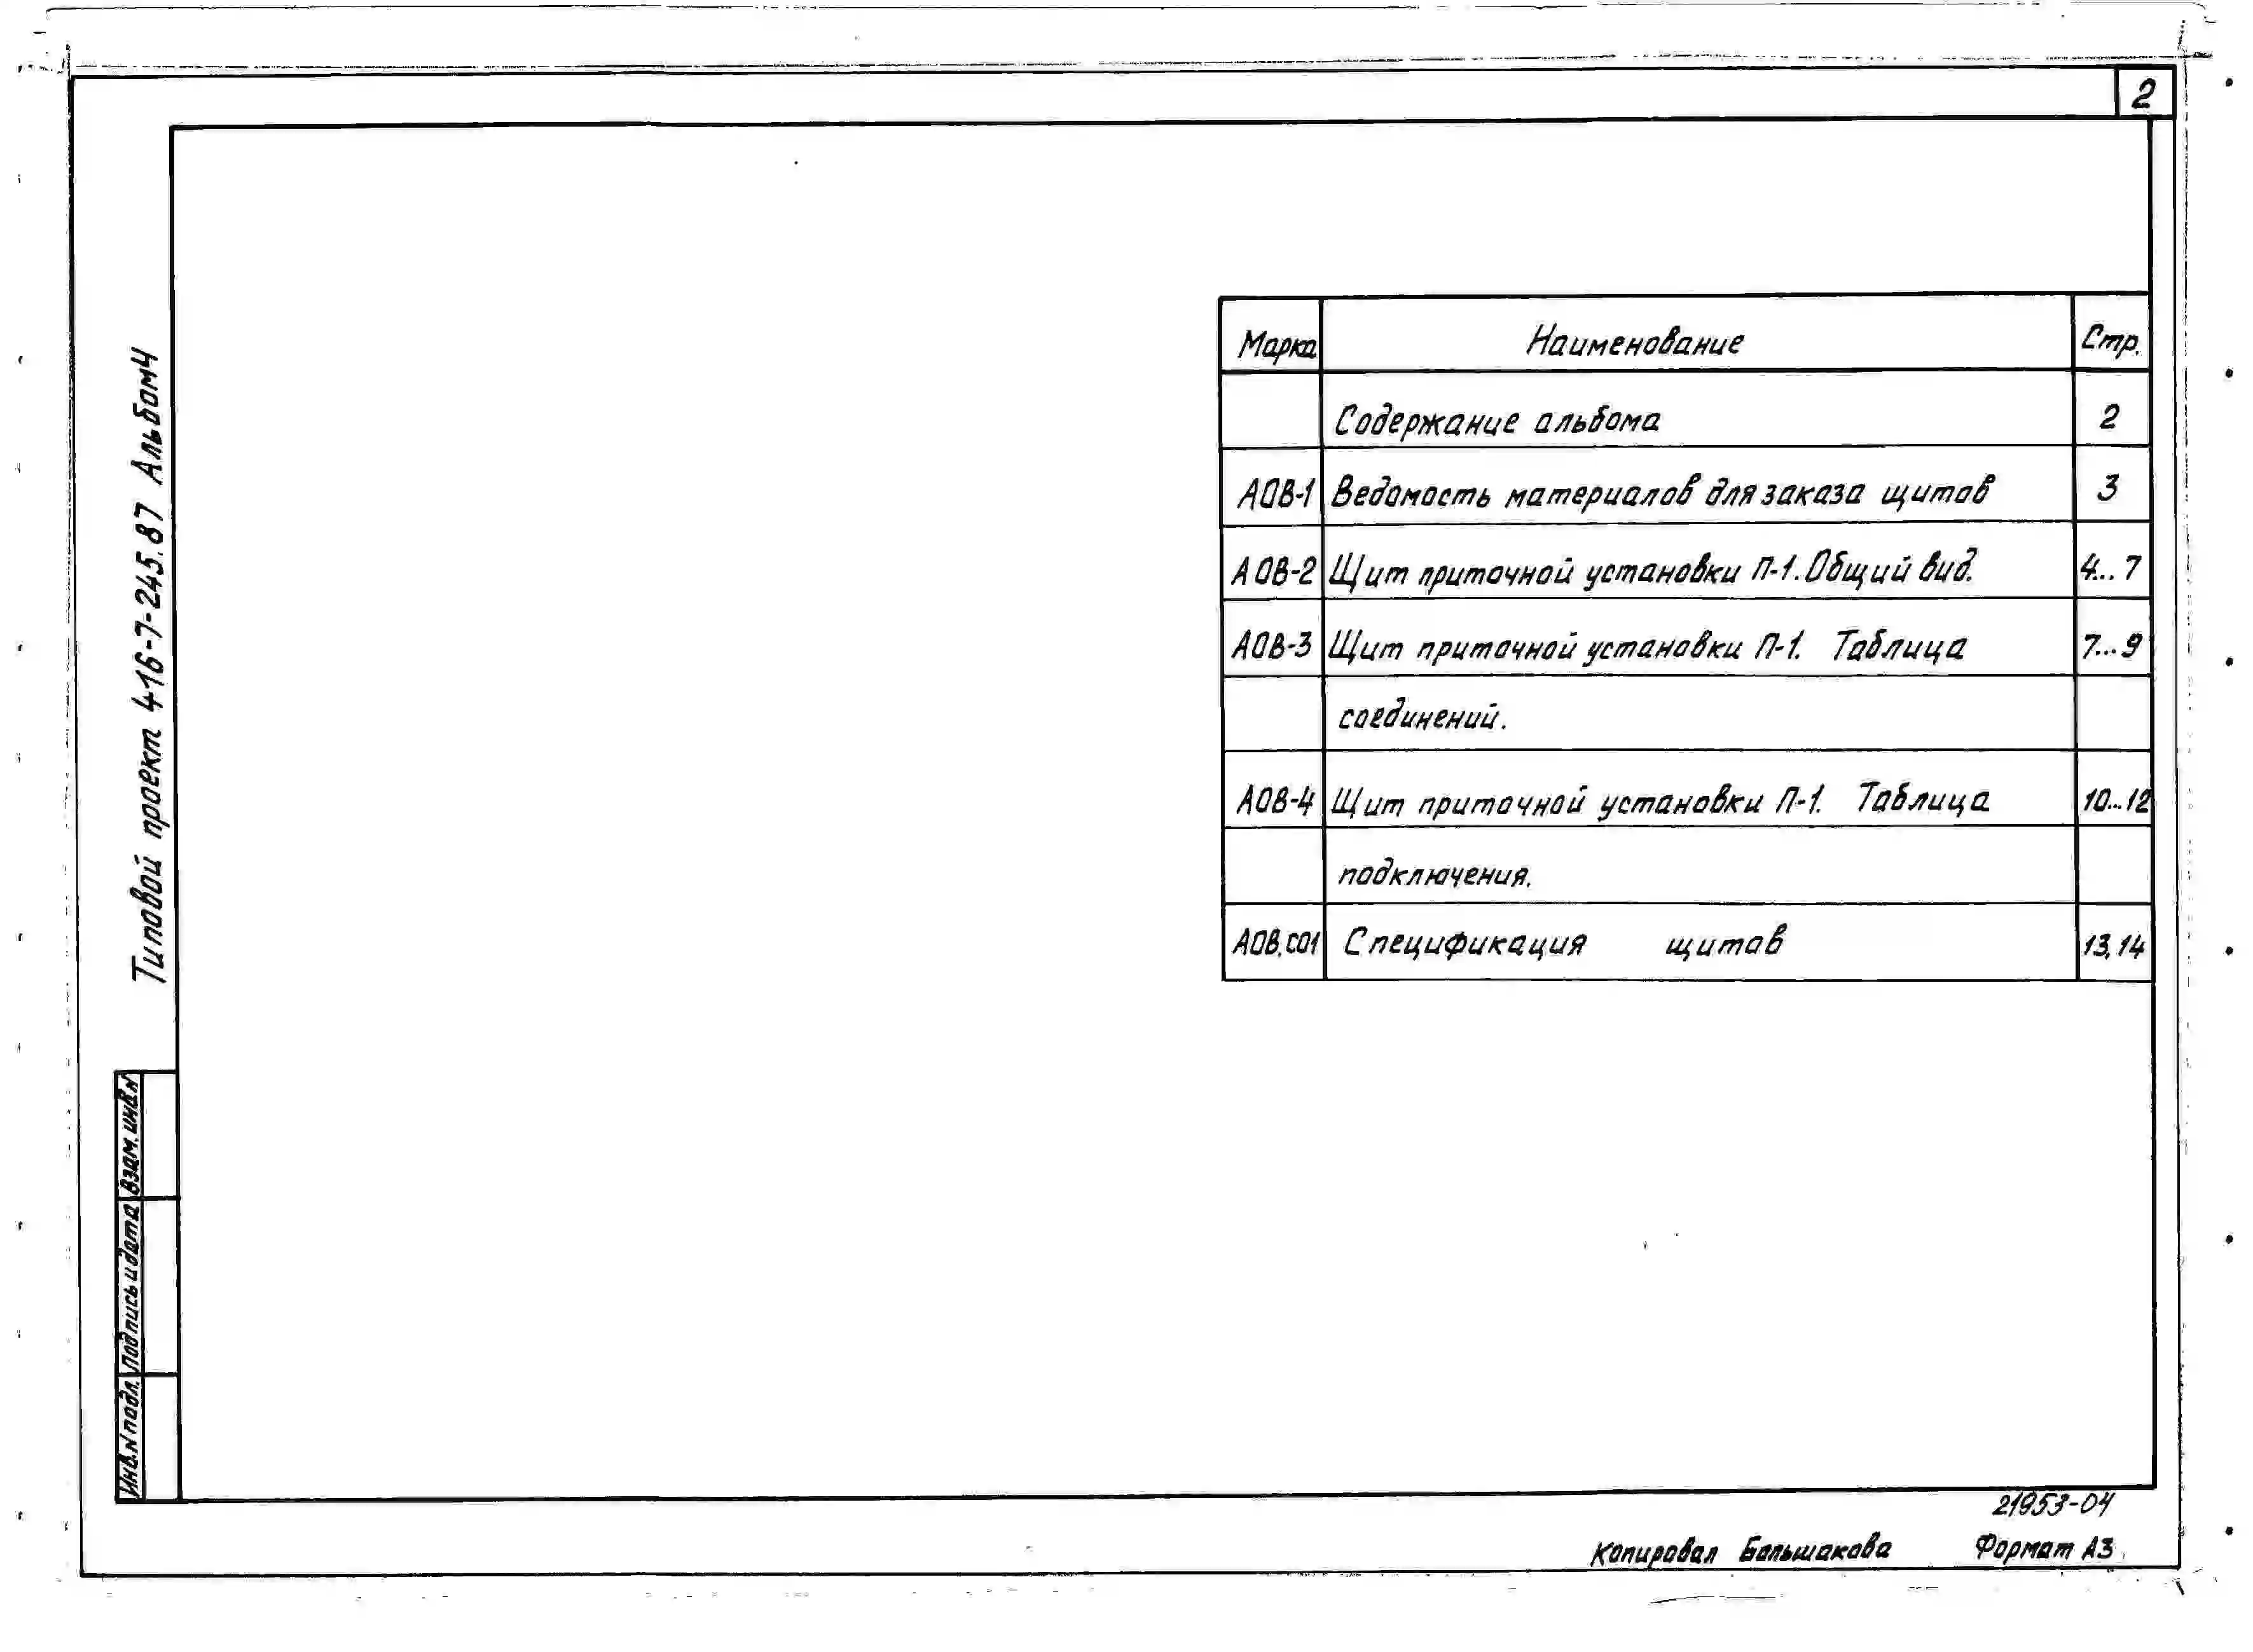 2
Типовой проект 416-7-245.87 Альбом 4
Марка Наименование Стр.
Содержание альбома 2
АОВ-1 Ведомость материалов для заказа щитов 3
АОВ-2 Щит приточной установки П-1. Общий вид. 4...7
АОВ-3 Щит приточной установки П-1. Таблица 7...9
соединений.
АОВ-4 Щит приточной установки П-1. Таблица 10...12
подключения.
АОВ.СО1 Спецификация щитов 13,14
Взам. инв. N
Подпись и дата
Инв. N подл.
21953-04
Копировал Большакова Формат А3